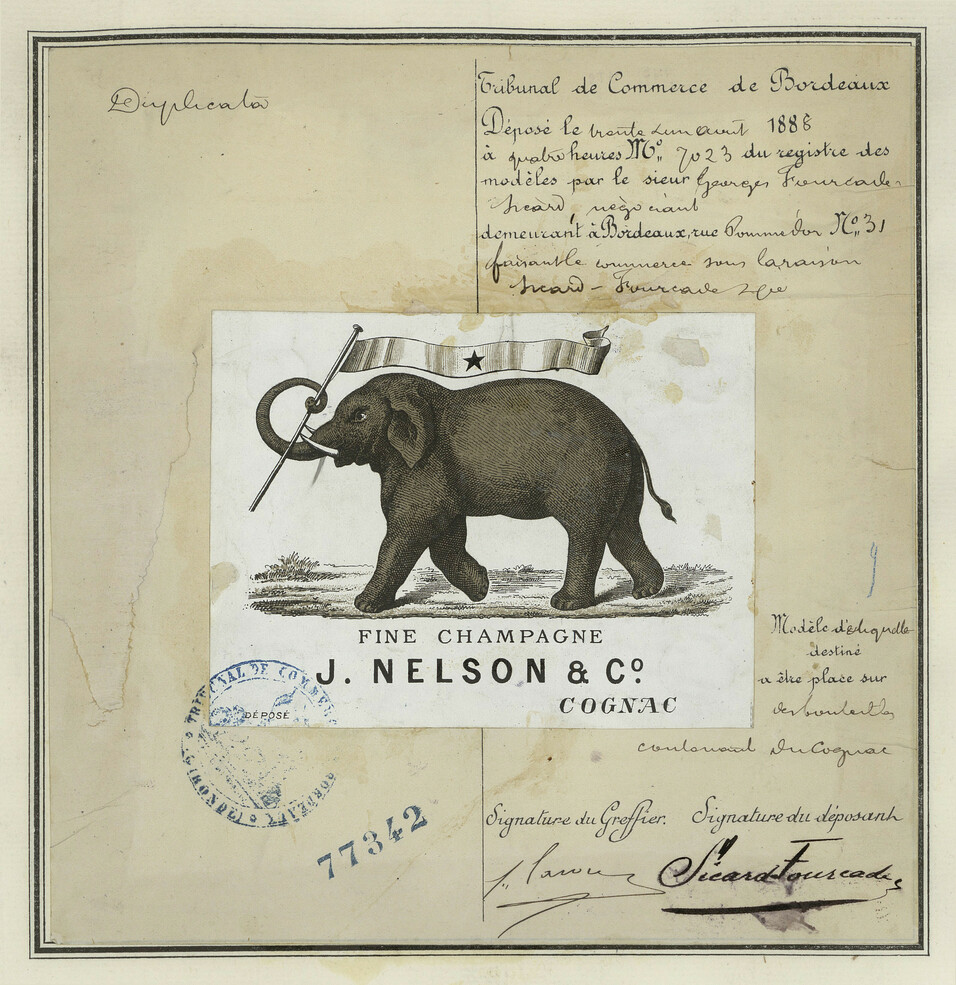 Duplicata
Tribunal de Commerce de Bordeaux
Déposé le trente août 1888
à quatre heures Mo. 7023 du registre des
modèles par le sieur Georges Fourcade-
Sicard, négociant
demeurant à Bordeaux, rue Pomme d'or No. 31
faisant le commerce sous la raison
Sicard-Fourcade
FINE CHAMPAGNE
J. NELSON & Co.
COGNAC
DÉPOSÉ
TRIBUNAL DE COMMERCE
BORDEAUX
(GIRONDE)
Modèle d'étiquette
destiné
a être place sur
des bouteilles
contenant du Cognac
77342
Signature du Greffier. Signature du déposant
Sicard Fourcade